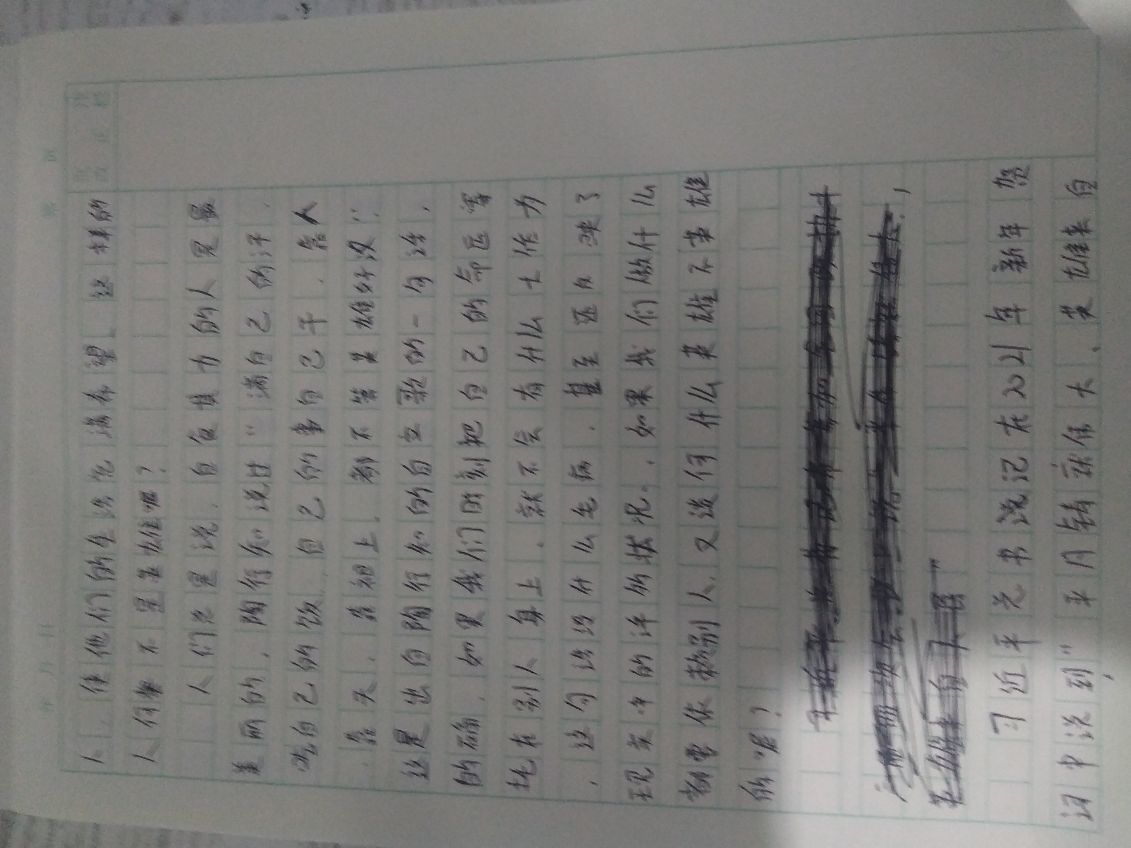 人，使他们的生活充满希望，这样的
人何尝不是英雄呢？
人们总是说，自食其力的人是最
美丽的，陶行知说过“滴自己的汗，
吃自己的饭，自己的事自己干，靠人
，靠天，靠祖上，都不算英雄好汉”，
这是出自陶行知的自立歌的一句话，
的确，如果我们时刻把自己的命运寄
托在别人身上，就不会有什么大作为
，这句话没什么毛病，甚至还反映了
现实中的许多的状况。如果我们做什么
都要依赖别人，又谈何什么英雄不英雄
的呢？
英雄来自人民”
习近平总书记在2021年新年贺
词中说到“平凡铸就伟大，英雄来自